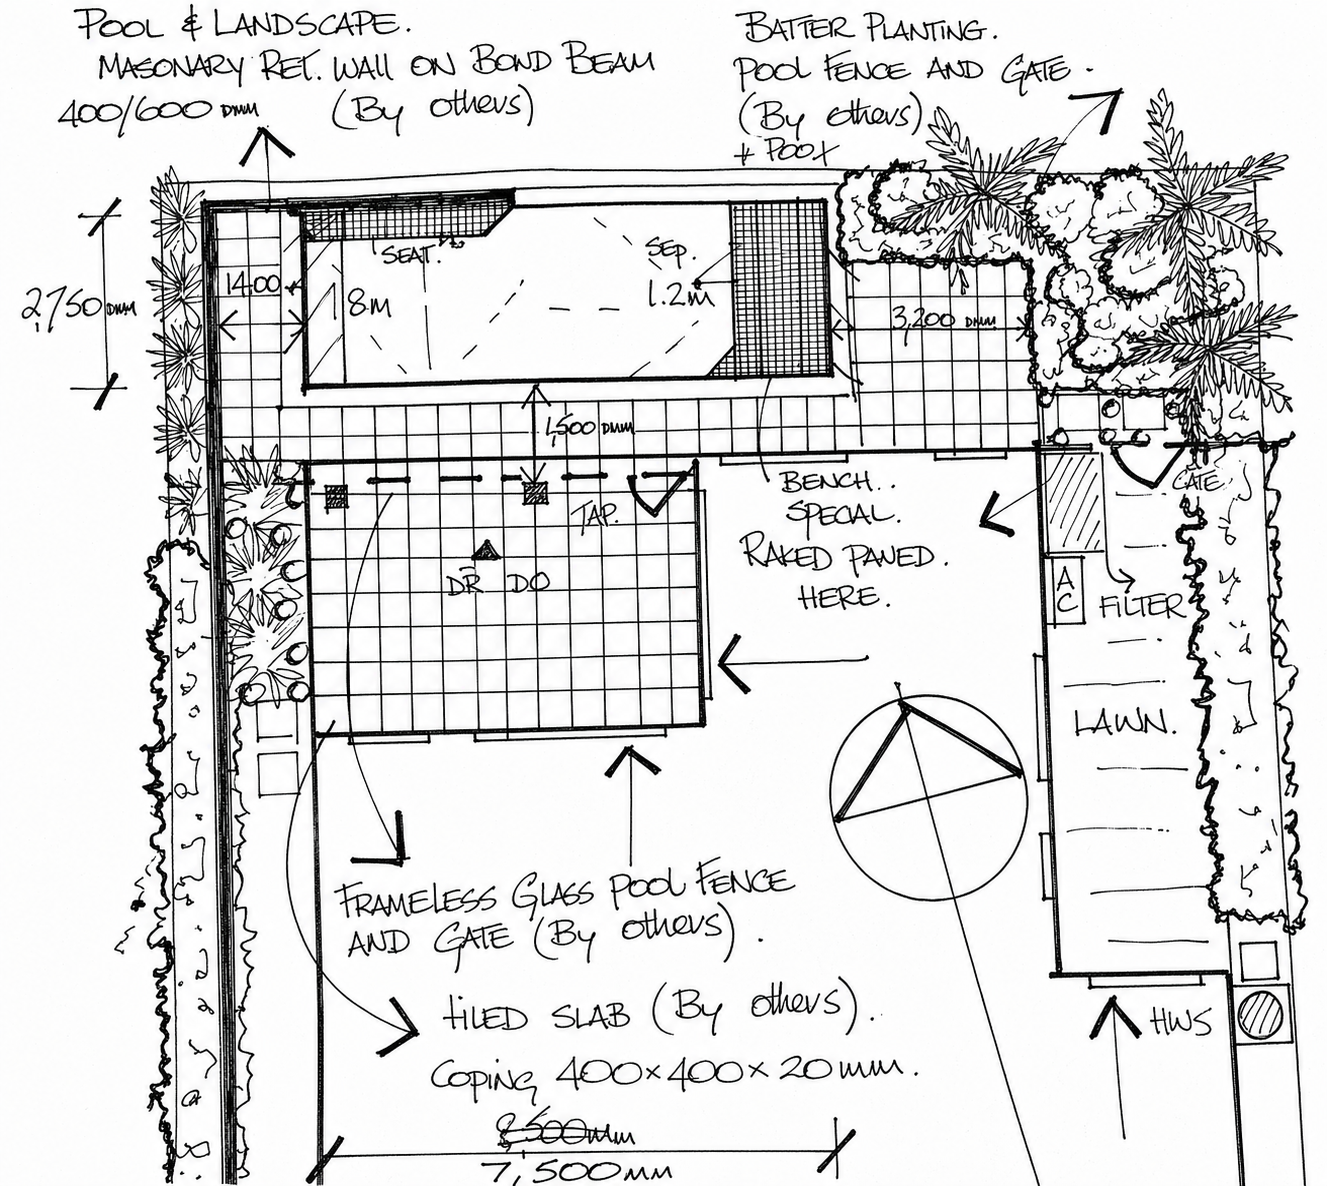 POOL & LANDSCAPE.
MASONARY RET. WALL ON BOND BEAM
400/600 DMM (By others)
BATTER PLANTING.
POOL FENCE AND GATE.
(By others)
2,750 DMM
SEAT.
1400
18M
1.2M
3,200 DMM
1,500 DMM
TAP.
DR DO
BENCH..
SPECIAL.
RAKED PANED.
HERE.
GATE.
AC
FILTER
LAWN.
FRAMELESS GLASS POOL FENCE
AND GATE (By others).
TILED SLAB (By others).
COPING 400×400×20mm.
HWS
7,500MM